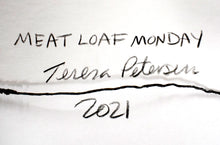 MEAT LOAF MONDAY
Teresa Petersen
2021